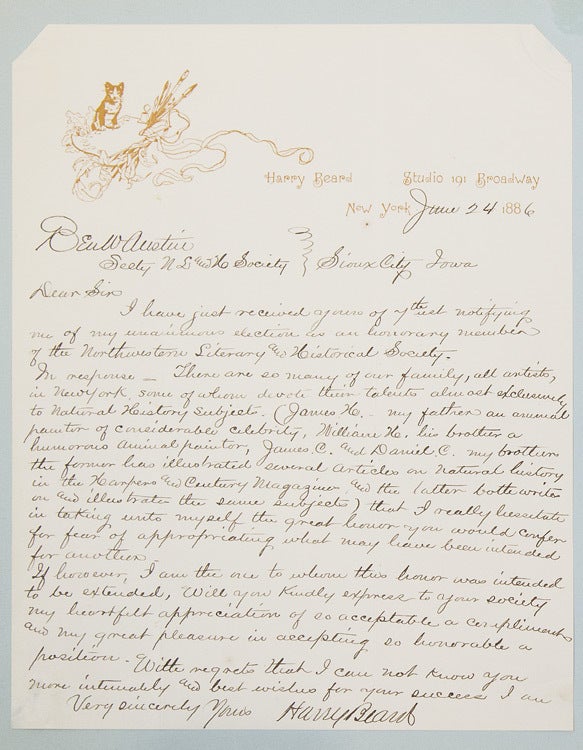 Harry Beard Studio 191 Broadway
New York June 24 1886
Ben W Austin
Secty N L and H Society } Sioux City Iowa
Dear Sir
I have just received yours of 7th inst notifying
me of my unanimous election as an honorary member
of the Northwestern Literary and Historical Society.
In response — There are so many of our family, all artists,
in New York, some of whom devote their talents almost exclusively
to Natural History subjects. (James H. — my father an animal
painter of considerable celebrity, William H, his brother a
humorous animal painter, James C. and Daniel C. my brothers
the former has illustrated several Articles on Natural history
in the Harpers and Century Magazines and the latter both writes
on and illustrates the same subjects) that I really hessitate
in taking unto myself the great honor you would confer
for fear of appropriating what may have been intended
for another.
If however, I am the one to whom this honor was intended
to be extended, Will you kindly express to your society
my heartfelt appreciation of so acceptable a compliment
and my great pleasure in accepting so honorable a
position. With regrets that I can not know you
more intimately and best wishes for your success I am
Very sincerely Yours Harry Beard